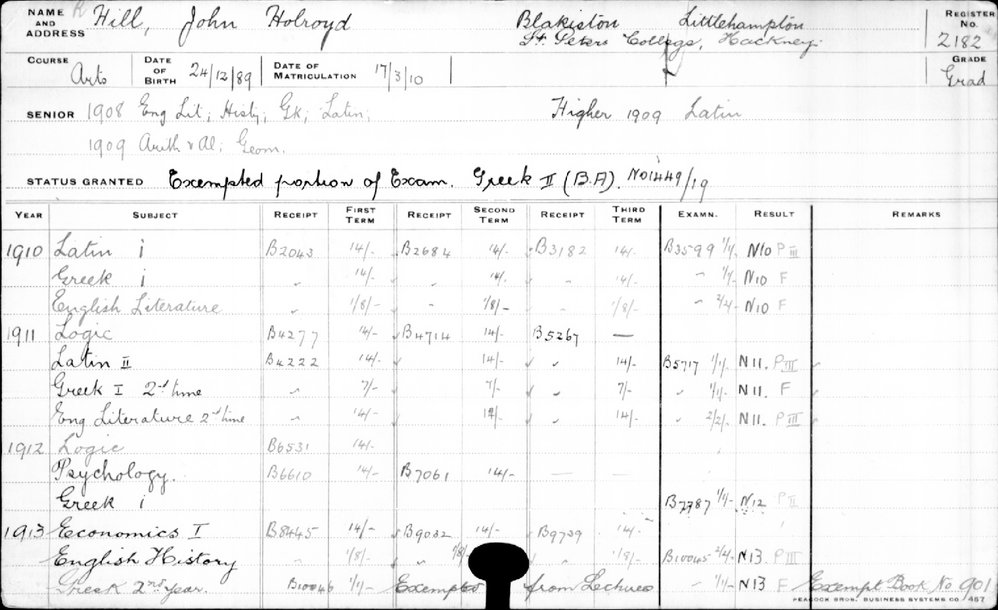 NAME AND ADDRESS Hill, John Holroyd Blakiston Littlehampton REGISTER No. 2182
St. Peters College, Hackney
COURSE Arts DATE OF BIRTH 24/12/89 DATE OF MATRICULATION 17/3/10 GRADE Grad
SENIOR 1908 Eng Lit; Histy; Gk; Latin; Higher 1909 Latin
1909 Arith & Al; Geom.
STATUS GRANTED Exempted portion of Exam. Greek II (B.A). No 1449/19
YEAR SUBJECT RECEIPT FIRST TERM RECEIPT SECOND TERM RECEIPT THIRD TERM EXAMN. RESULT REMARKS
1910 Latin i B2043 14/- B2684 14/- B3182 14/- B3599 1/1/- N10 P III
Greek i " 14/- " 14/- " 14/- " 1/1/- N10 F
English Literature " 1/8/- " 1/8/- " 1/8/- " 2/2/- N10 F
1911 Logic B4277 14/- B4714 14/- B5267 —
Latin II B4222 14/- 14/- " 14/- B5717 1/1/- N11. P III
Greek I 2nd time " 7/- 7/- " 7/- " 1/1/- N11. F
Eng Literature 2nd time " 14/- 14/- " 14/- " 2/2/- N11. P III
1912 Logic B6531 14/-
Psychology. B6610 14/- B7061 14/- — —
Greek i B7787 1/1/- N12 P II
1913 Economics I B8445 14/- B9032 14/- B9739 14/-
English History " 1/8/- 1/8/- " 1/8/- B10045 2/2/- N13 P III
Greek 2nd Year. B10046 1/1/- Exempted from Lectures " 1/1/- N13 F Exempt Book No 901
PEACOCK BROS. BUSINESS SYSTEMS CO. 457